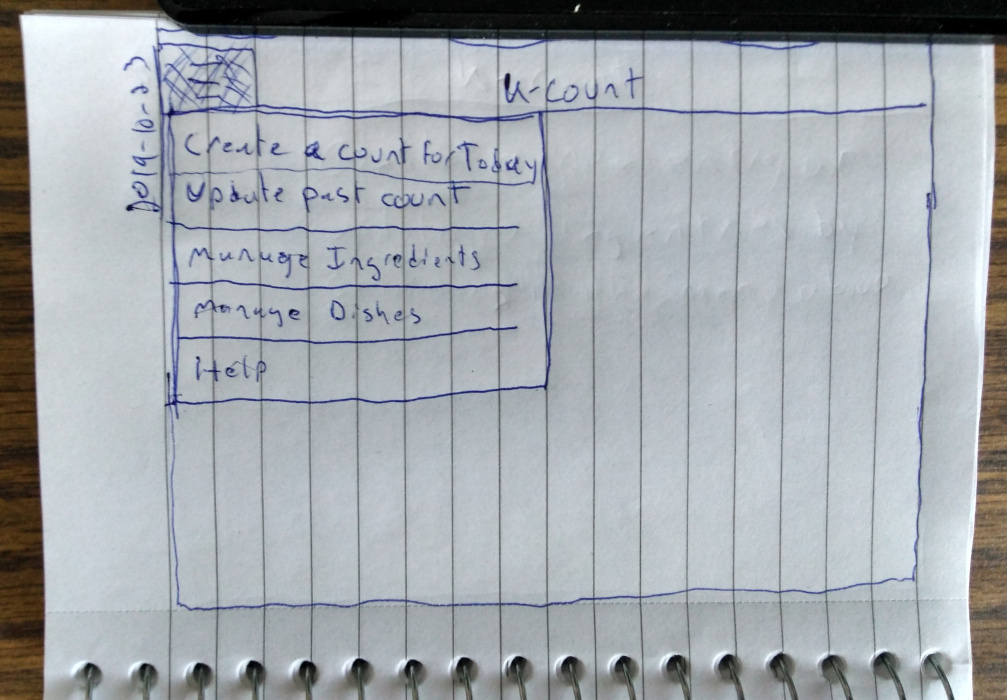 2019-10-23
U-count
Create a count for Today
Update past count
Manage Ingredients
Manage Dishes
Help